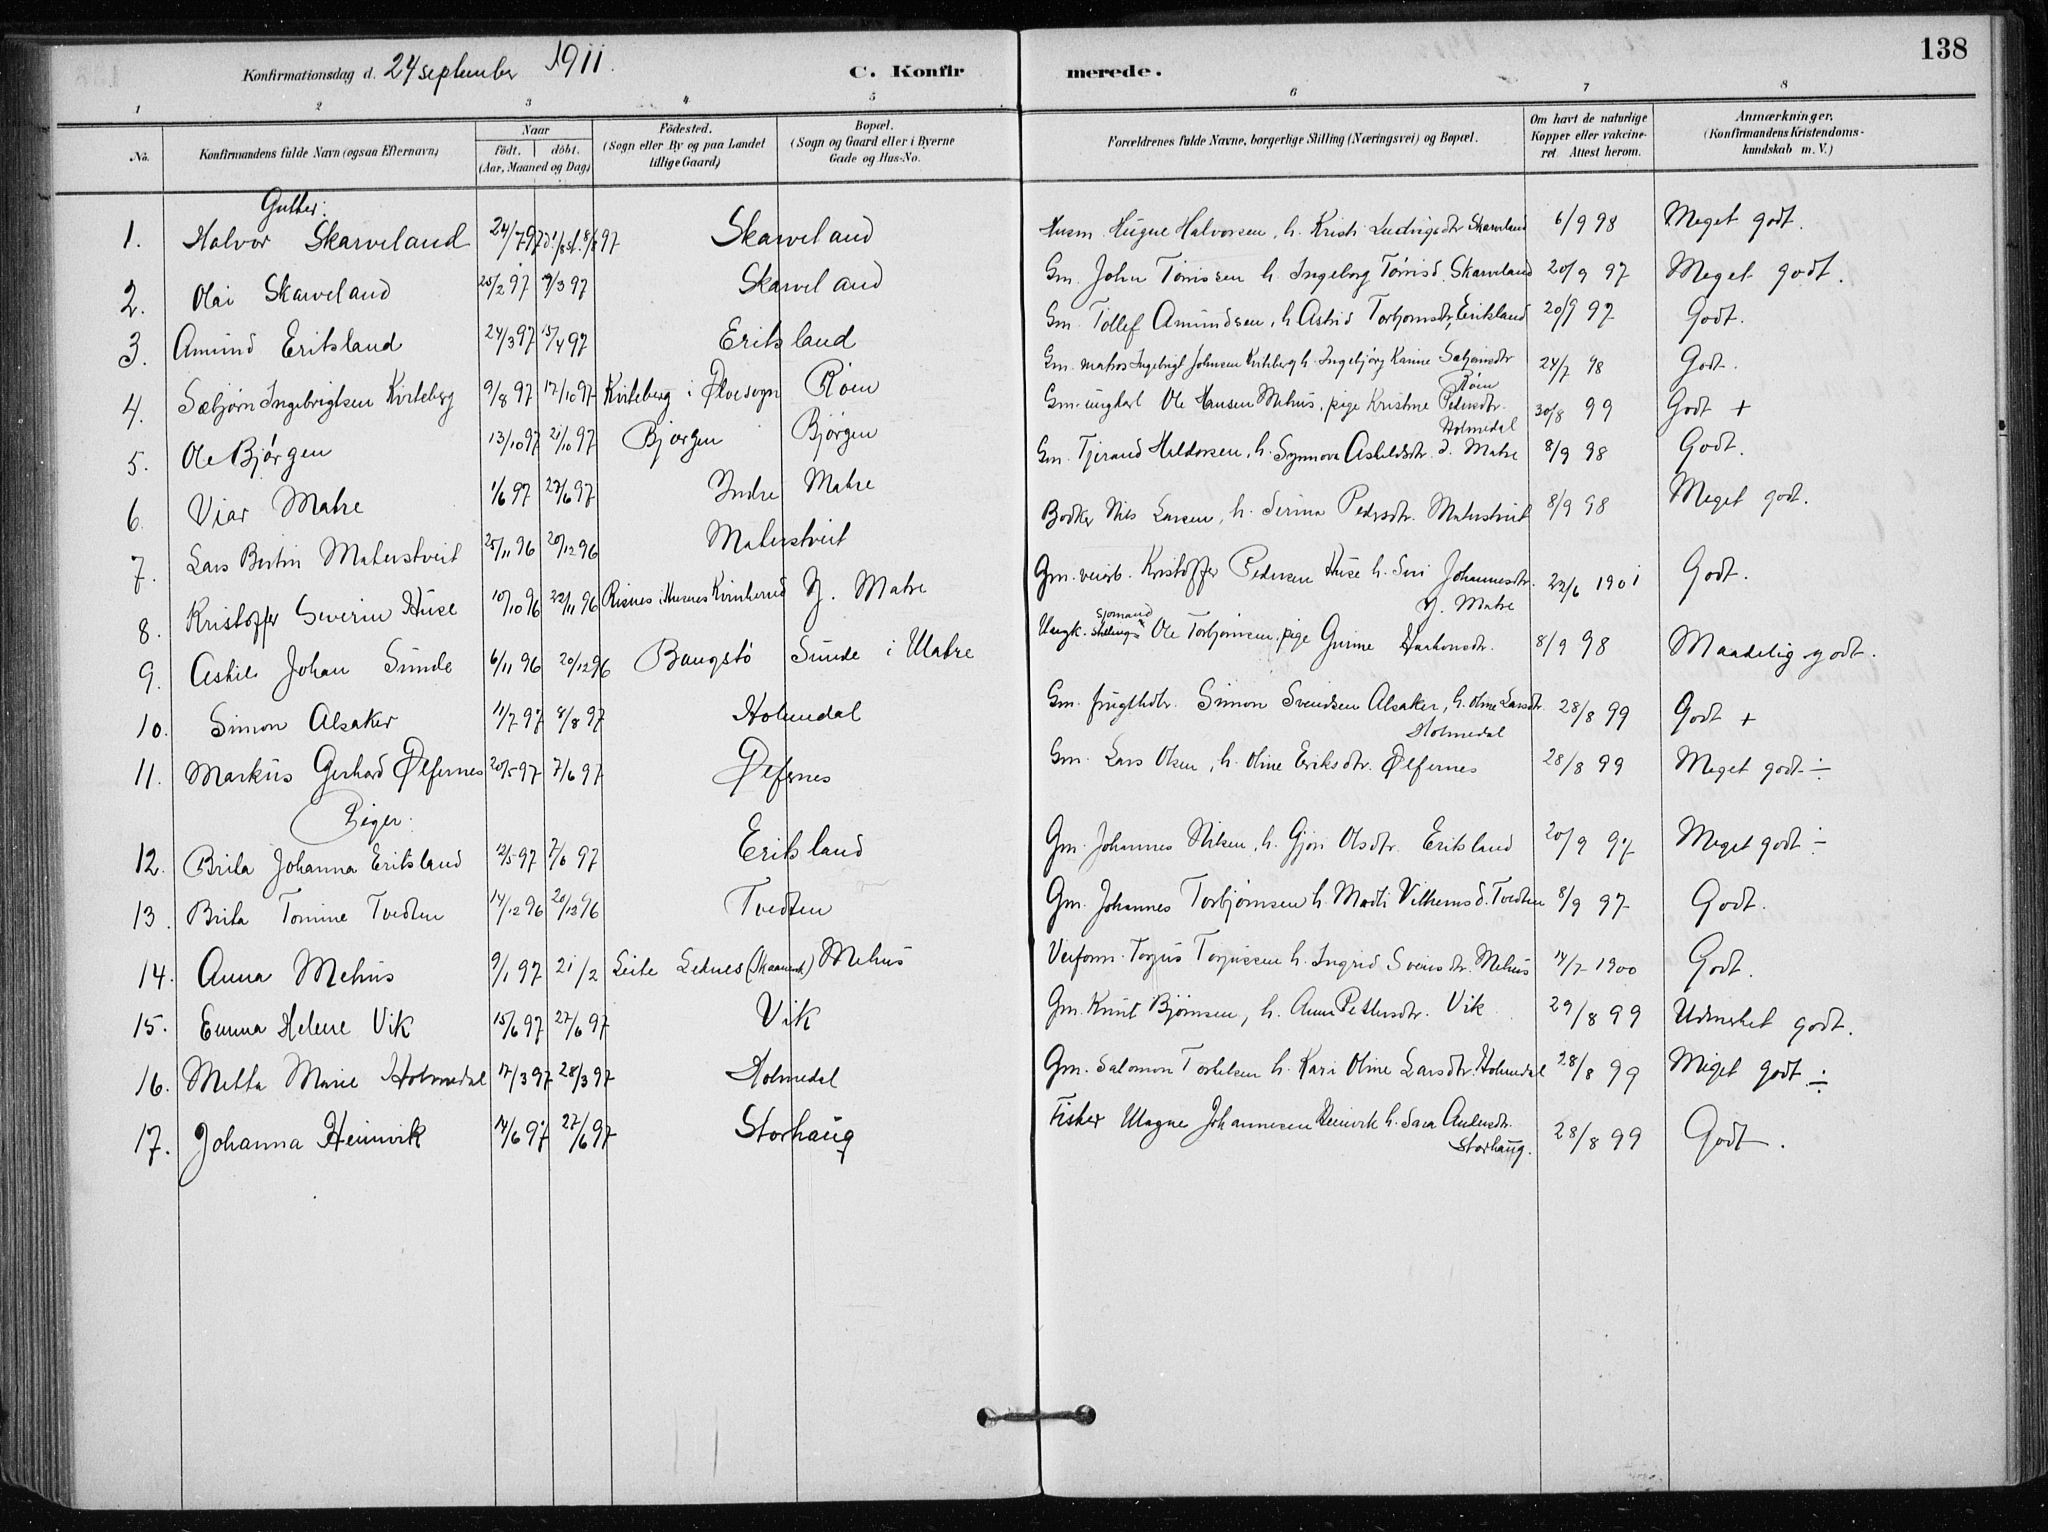 138
Konfirmationsdag d. 24 september 1911.
C. Konfirmerede.
1 2 3 4 5 6 7 8
No. Konfirmandens fulde Navn (ogsaa Efternavn) Naar født. døbt. (Aar, Maaned og Dag) Fødested. (Sogn eller By og paa Landet tillige Gaard) Bopæl. (Sogn og Gaard eller i Byerne Gade og Hus-No. Forældrenes fulde Navne, borgerlige Stilling (Næringsvei) og Bopæl. Om havt de naturlige Kopper eller vakcineret. Attest herom. Anmærkninger. (Konfirmandens Kristendomskundskab m. V.)
Gutter:
1. Halvor Skarveland 24/7 97 8/8 97 Skarveland Husm. Halvorsen, h. Kristi Ludvigsdtr Skarveland 6/9 98 Meget godt.
2. Olai Skarveland 25/2 97 /3 97 Skarveland Gm. John Tørrissen h. Ingeborg Tørrisd. Skarveland 20/9 97 Meget godt.
3. Amund Eriksland 24/3 97 15/4 97 Eriksland Gm. Tollef Amundsen, h. Astrid Torbjornsdtr, Eriksland 20/9 97 Godt.
4. Sæbjørn Ingebrigtsen Kvitebrg 9/8 97 17/10 97 Kviteberg i Ølve sogn Røen Gm. matros Ingebrigt Johnsen Kviteberg h. Ingebjørg Karine Sæbjørnsdtr Røen 24/7 98 Godt.
5. Ole Bjørgen 13/10 97 21/10 97 Bjørgen Bjørgen Gm. ungkarl Ole Hansen Mehus, pige Kristine Pedersdtr. Holmedal 30/8 99 Godt +
6. Viar Matre 1/6 97 27/6 97 Indre Matre Gm. Tjerand Haldorsen, h. Synnøva Askildsdtr. I. Matre 8/9 98 Godt.
7. Lars Bertin Materstveit 25/11 96 20/12 96 Materstveit Bødker Nils Larsen, h. Serina Pedersdtr. Materstveit 8/9 98 Meget godt.
8. Kristoffer Severin Huse 10/10 96 22/11 96 Risnes i Husnes Kvinherred Y. Matre Gm. Kristoffer Pedersen Huse h. Siri Johannesdtr. Y. Matre 22/6 1901 Godt.
9. Askil Johan Sunde 6/11 96 20/12 96 Baugstø Sunde i Matre Ungk. Sjømand Ole Torbjørnsen, pige Gurine Haakonsdtr. 8/9 98 Maadelig godt.
10. Simon Alsaker 11/7 97 8/8 97 Holmedal Gm. Simon Svendsen Alsaker, h. Oline Larsdtr. Holmedal 28/8 99 Godt +
11. Markus Gerhard Ølfernes 20/5 97 7/6 97 Ølfernes Gm. Lars Olsen, h. Oline Eriksdtr. Ølfernes 28/8 99 Meget godt ÷
Piger:
12. Brita Johanna Eriksland 12/5 97 7/6 97 Eriksland Gm. Johannes Nilsen, h. Gjøri Olsdtr. Eriksland 20/9 97 Meget godt ÷
13. Brita Tomine Tvedten 14/12 96 20/12 96 Tvedten Gm. Johannes Torbjørnsen h. Marti Vilhemsd. Tvedten 8/9 97 Godt.
14. Anna Mehus 9/1 97 21/2 Leite Mehus Torjus Torjussen h. Ingrid Svensdtr. Mehus 14/7 1900 Godt.
15. Emma Helene Vik 15/6 97 27/6 97 Vik Gm. Knut Bjørnsen, h. Anna Pettersdtr. Vik 29/8 99 Udmerket godt.
16. Metta Marie Holmedal 17/3 97 28/3 97 Holmedal Gm. Salomon Torkelsen h. Kari Oline Larsdtr. Holmedal 28/8 99 Meget godt ÷
17. Johanna Heimvik 14/6 97 27/6 97 Storhaug Fisker Magne Johannesen Heimvik h. Sara Andersdtr. Storhaug. 28/8 99 Godt.